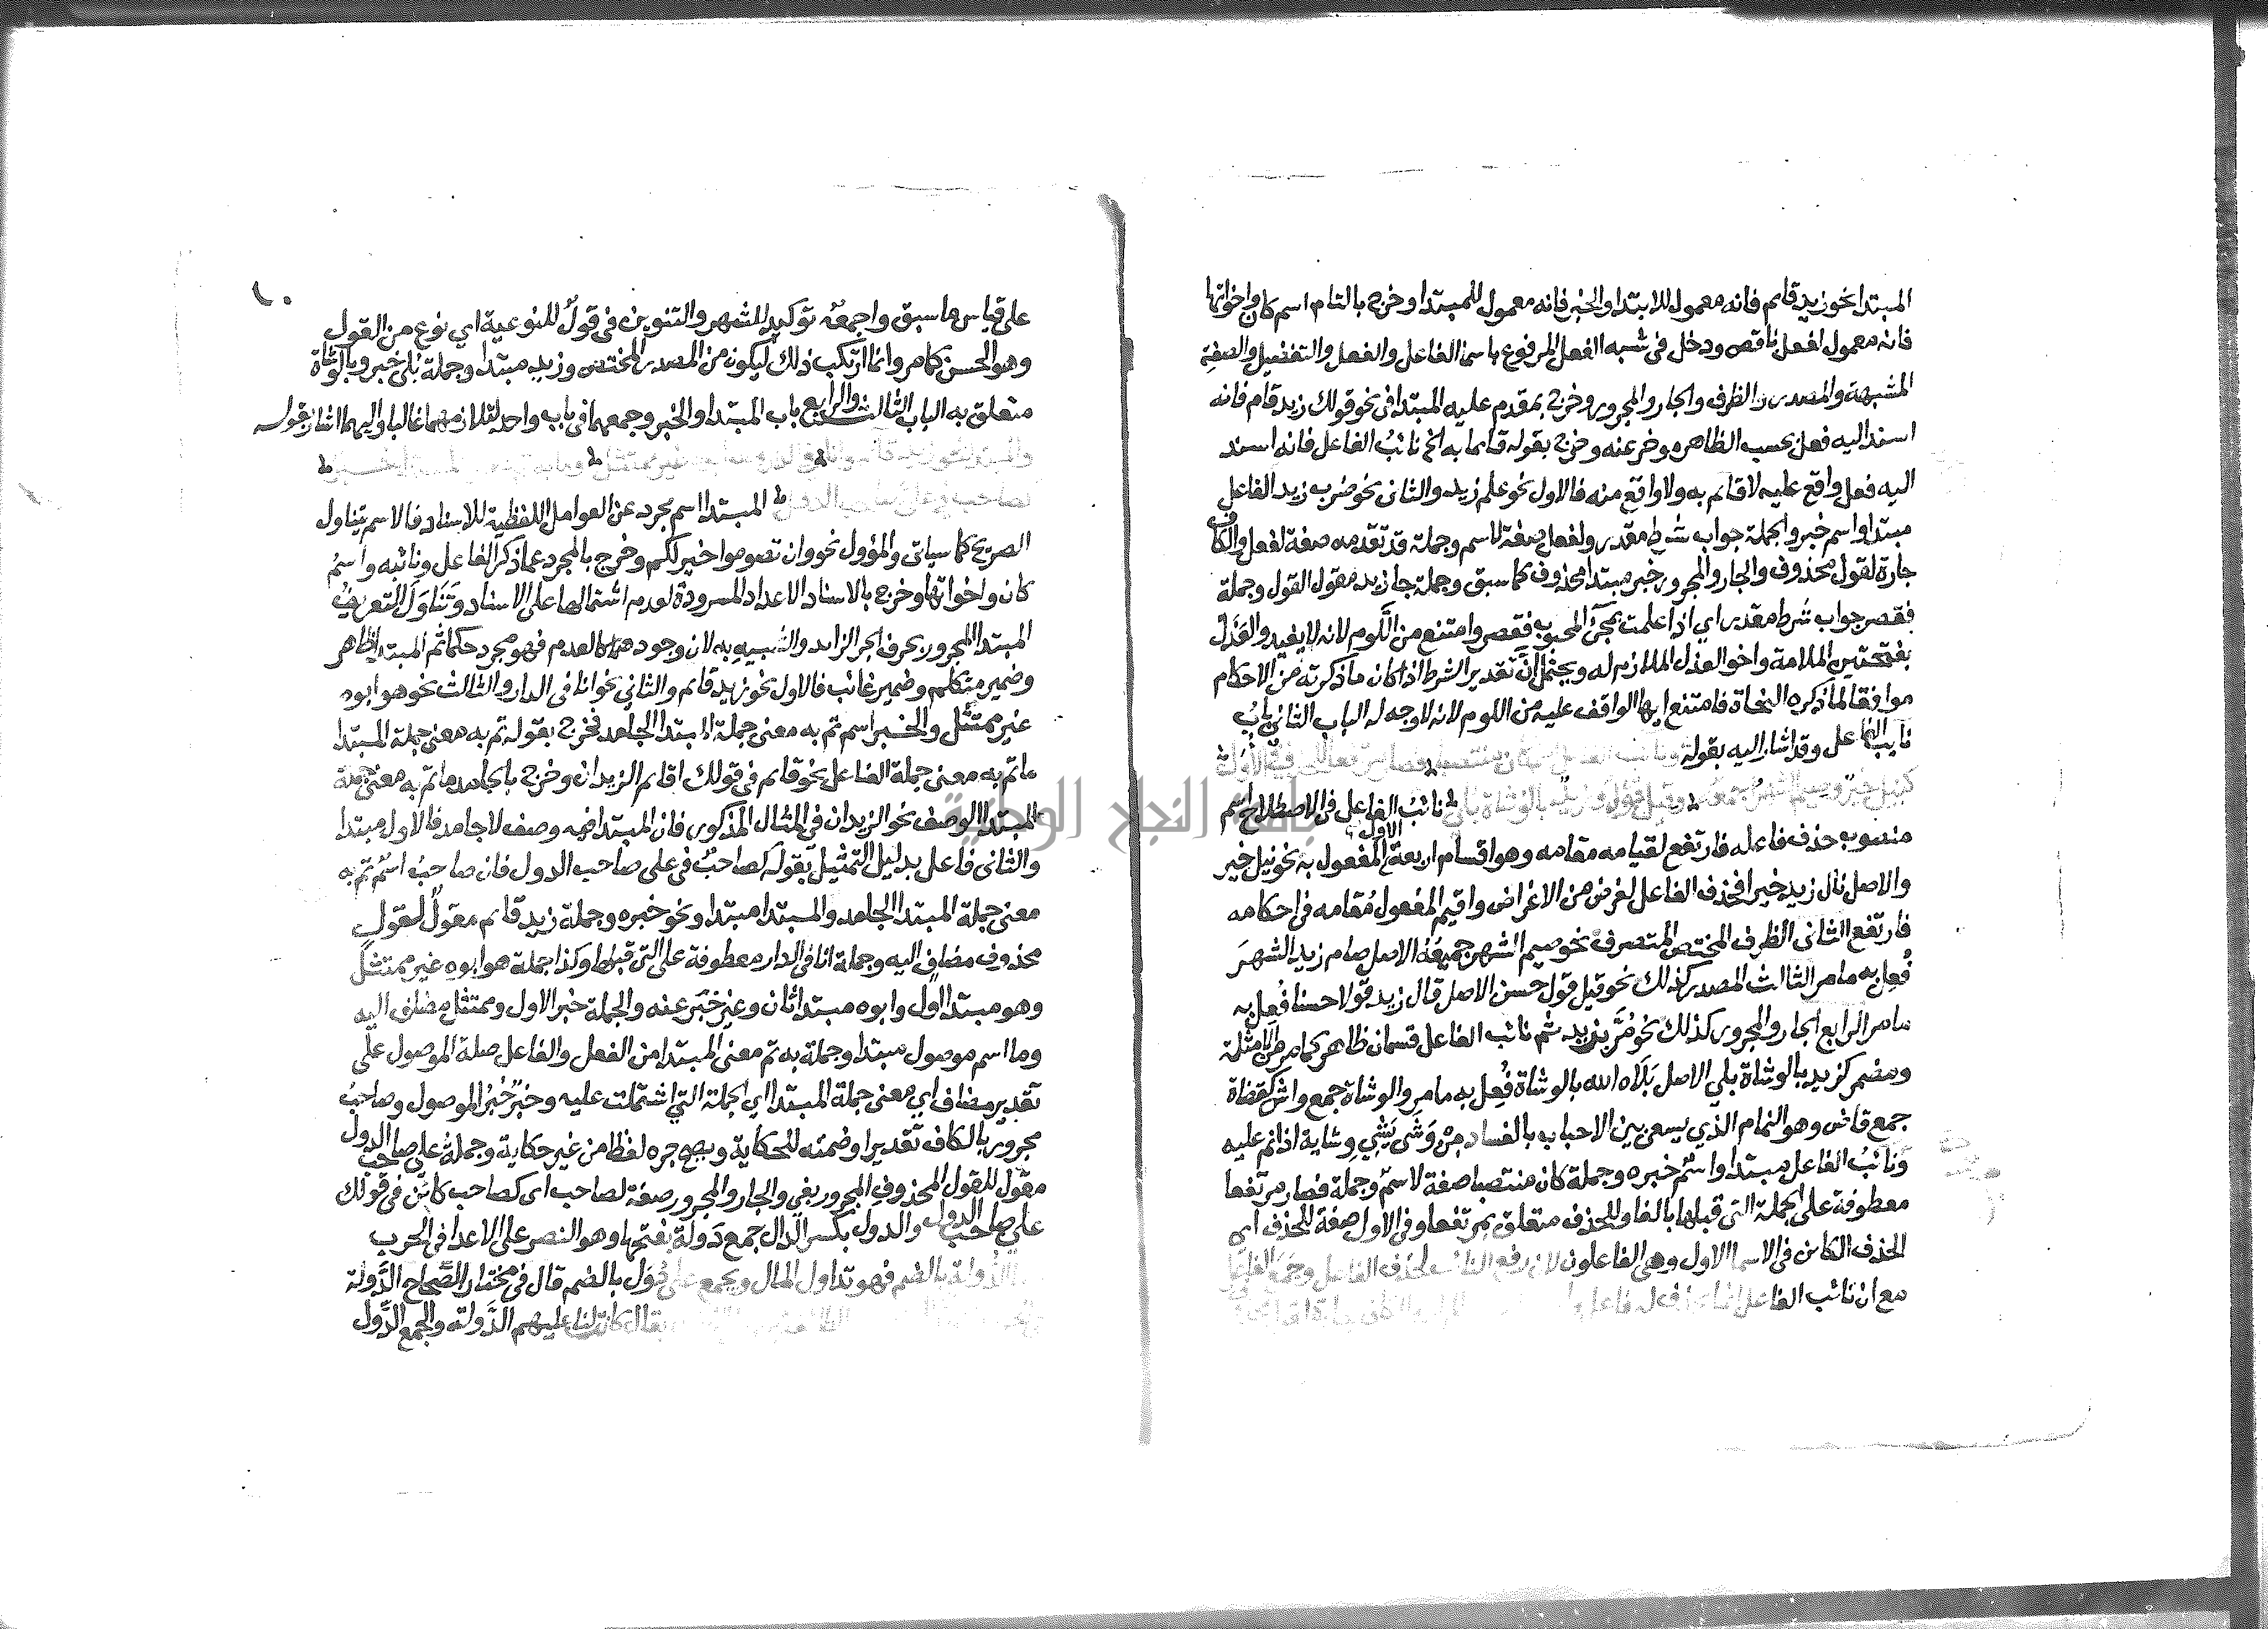 المبتدا نحو زيد قايم فانه معمول للابتدا والخبر فانه معمول للمبتدا وخرج بالتام اسم كان واخواتها
فانه معمول لفعل ناقص ودخل في شبه الفعل المرفوع باسما الفاعل والفعل والتفضيل والصفة
المشبهة والمصدر والظرف والجار والمجرور وخرج بمقدم عليه المبتدا في نحو قولك زيد قام فانه
اسند اليه فعل بحسب الظاهر وخر عنه وخرج بقوله قايما به الخ نائبُ الفاعل فانه اسند
اليه فعل واقع عليه لا قايم به ولا واقع منه فالاول نحو علم زيد والثاني نحو ضرب زيد الفاعل
مبتدا واسم خبر والجملة جواب شرط مقدر ولفعل صفة لاسم وجملة قد تقدمه صفة لفعل والكاف
جارة لقول محذوف والجار والمجرور خبر مبتدا محذوف كما سبق وجملة جا زيد مقول القول وجملة
فقصر جواب شرط مقدر اي اذا علمت بمجئ المحبوب فقصر وامتنع من اللَّوم لانه لا يفيد والعَذل
بفتحتين الملامة واخو العذل الملازم له ويحتمل انَّ تقدير الشرط اذا كان ما ذكرته من الاحكام
موافقا لما ذكره النحاة فامتنع ايها الواقف عليه من اللوم لانه لا وجه له الباب الثاني بابُ
نايب الفاعل وقد اشار اليه بقوله
نائبُ الفاعل في الاصطلاح اسم
منسوب حذف فاعله فارتفع لقيامه مقامه وهو اقسام اربعة الاول المفعول به نحو نيل خير
والاصل نال زيد خيرا فحذف الفاعل لغرض من الاغراض واقيم المفعول مُقامه في احكامه
فارتفع الثاني الظرف المختص المتصرف نحو صيم الشهر جميعُهُ الاصل صام زيد الشهرَ
فُعل به ما مر الثالث المصدر كذلك نحو قيل قول حسن الاصل قال زيد قولا حسنا فُعِل به
ما مر الرابع الجار والمجرور كذلك نحو مُرَّ بزيد ثم نائب الفاعل قسمان ظاهر كما مر من الامثلة
ومضمر كزيد بالوشاة بلي الاصل بَلَاه الله بالوشاة فُعِل به ما مر والوشاة جمع واش كقضاة
جمع قاض وهو النمام الذي يسعى بين الاحباب بالفساد مِنْ وَشَى يَشِي وِشاية اذا نم عليه
ونائبُ الفاعل مبتدا واسمٌ خبره وجملة كان منتصبا صفة لاسمٌ وجملة فصار مرتفعا
معطوفة على الجملة التي قبلها بالفا وللحذف متعلق بمرتفعا وفي الاول صفة للحذف اي
الحذف الكائن في الاسما الاول وهي الفاعلون لان رفع النائب لحذف الفاعل وجَمَعَ الفاعل
مع ان نائب الفاعل
على قياس ما سبق واجمعُه توكيد للشهر والتنوين في قولٌ للنوعية اي نوع من القول
وهو الحسن كما مر وانما ارتكب ذلك ليكون من المصدر المختص وزيد مبتدا وجملة بُلي خبر وبالوُشاة
متعلق به الباب الثالث والرابع باب المبتدا والخبر وجمعهما في باب واحد لتلازمهما غالبا واليهما اشار بقوله
المبتدا اسم مجرد عن العوامل اللفظية للاسناد فالاسم يتناول
الصريح كما سياتي والمؤول نحو وان تصوموا خير لكم وخرج بالمجرد عما ذكر الفاعل ونائبه واسمُ
كان واخواتها وخرج بالاسناد الاعداد المسرودة لعدم اشتمالها على الاسناد وتَنَاوَلَ التعريفُ
المبتدا المجرور بحرف الجر الزايد والشبيهِ به لان وجودهما كالعدم فهو مجرد حكما ثم المبتدا ظاهر
وضمير متكلم وضمير غائب فالاول نحو زيد قايم والثاني نحو انا في الدار والثالث نحو هو ابوه
غير ممتثل والخبر اسم تم به معنى جملة المبتدا الجامد فخرج بقوله تم به معنى جملة المبتدا
ما تم به معنى جملة الفاعل نحو قايم في قولك اقايم الزيدان وخرج بالجامد ما تم به معنى جملة
المبتدا الوصف نحو الزيدان في المثال المذكور فان المبتدا فيه وصف لا جامد فالاول مبتدا
والثاني فاعل بدليل التمثيل بقوله كصاحبٌ في على صاحب الدول فان صاحبُ اسمٌ تم به
معنى جملة المبتدا الجامد والمبتدا مبتدا ونحو خبره وجملة زيد قايم مقولٌ لقول
محذوف مضاف اليه وجملة انا في الدار معطوفة على التي قبلها وكذا جملة هو ابوه غير ممتثل
وهو مبتدا اول وابوه مبتدا ثان وغيرُ خبَر عنه والجملة خبر الاول وممتثل مضاف اليه
وما اسم موصول مبتدا وجملة به تم معنى المبتدا من الفعل والفاعل صلة الموصول على
تقدير مضاف اي معنى جملة المبتدا اي الجملة التي اشتملت عليه وخبرٌ خبرُ الموصول وصاحبُ
مجرور بالكاف تقديرا وضمته للحكاية ويصح جره لفظا من غير حكاية وجملةُ على صاحب الدول
مقول للقول المحذوف المجرور بفي والجار والمجرور صفة لصاحب اي كصاحب كائن في قولك
على صاحب الدول والدول بكسر الدال جمع دَولة بفتحها وهو النصر على الاعدا في الحرب
الدُولة بالضم فهو تداول المال ويجمع على دُوَل بالضم قال في مختار الصَّحاح الدَّولة
يقال كانت لنا عليهم الدَّولة والجمع الدِّول
باقة النجاح الوطنية